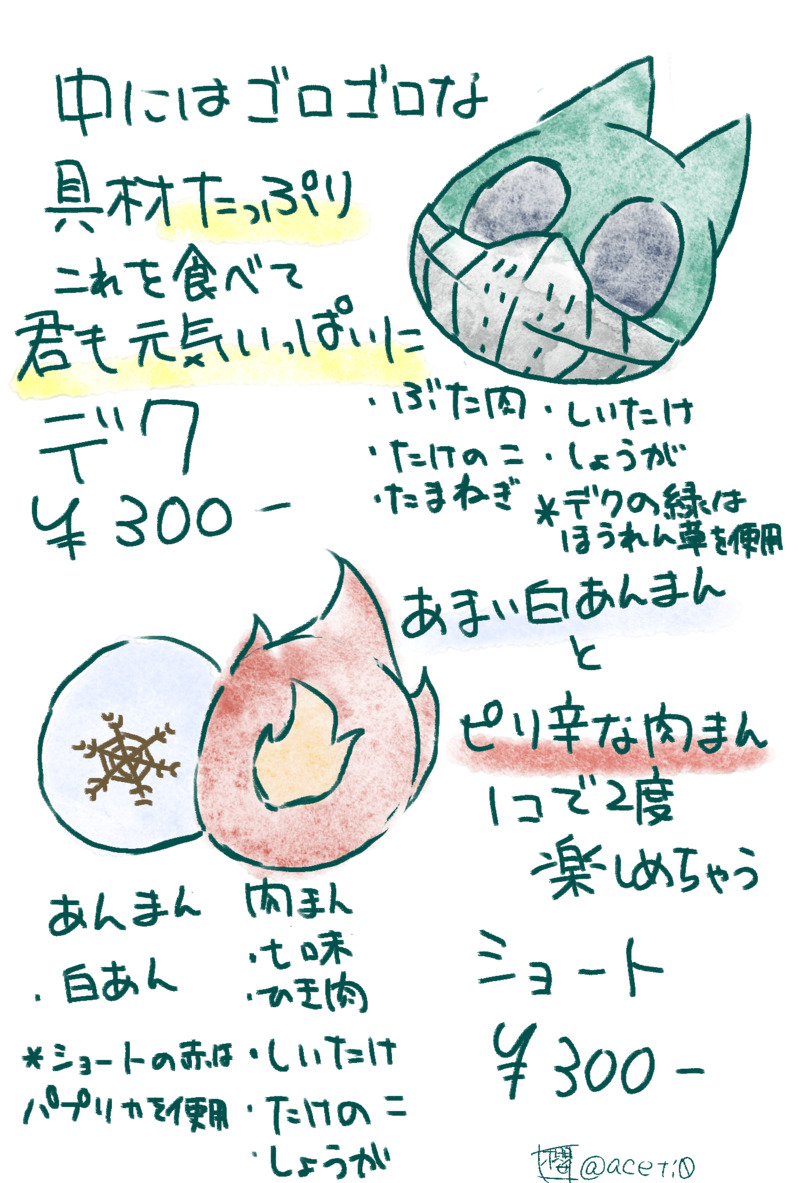 中にはゴロゴロな
具材たっぷり
これを食べて
君も元気いっぱいに
デク
¥300-
・ぶた肉・しいたけ
・たけのこ・しょうが
・たまねぎ
*デクの緑は
ほうれん草を使用
あまい白あんまん
と
ピリ辛な肉まん
1コで2度
楽しめちゃう
ショート
¥300-
あんまん
・白あん
*ショートの赤は
パプリカを使用
肉まん
・七味
・ひき肉
・しいたけ
・たけのこ
・しょうが
@aceti0